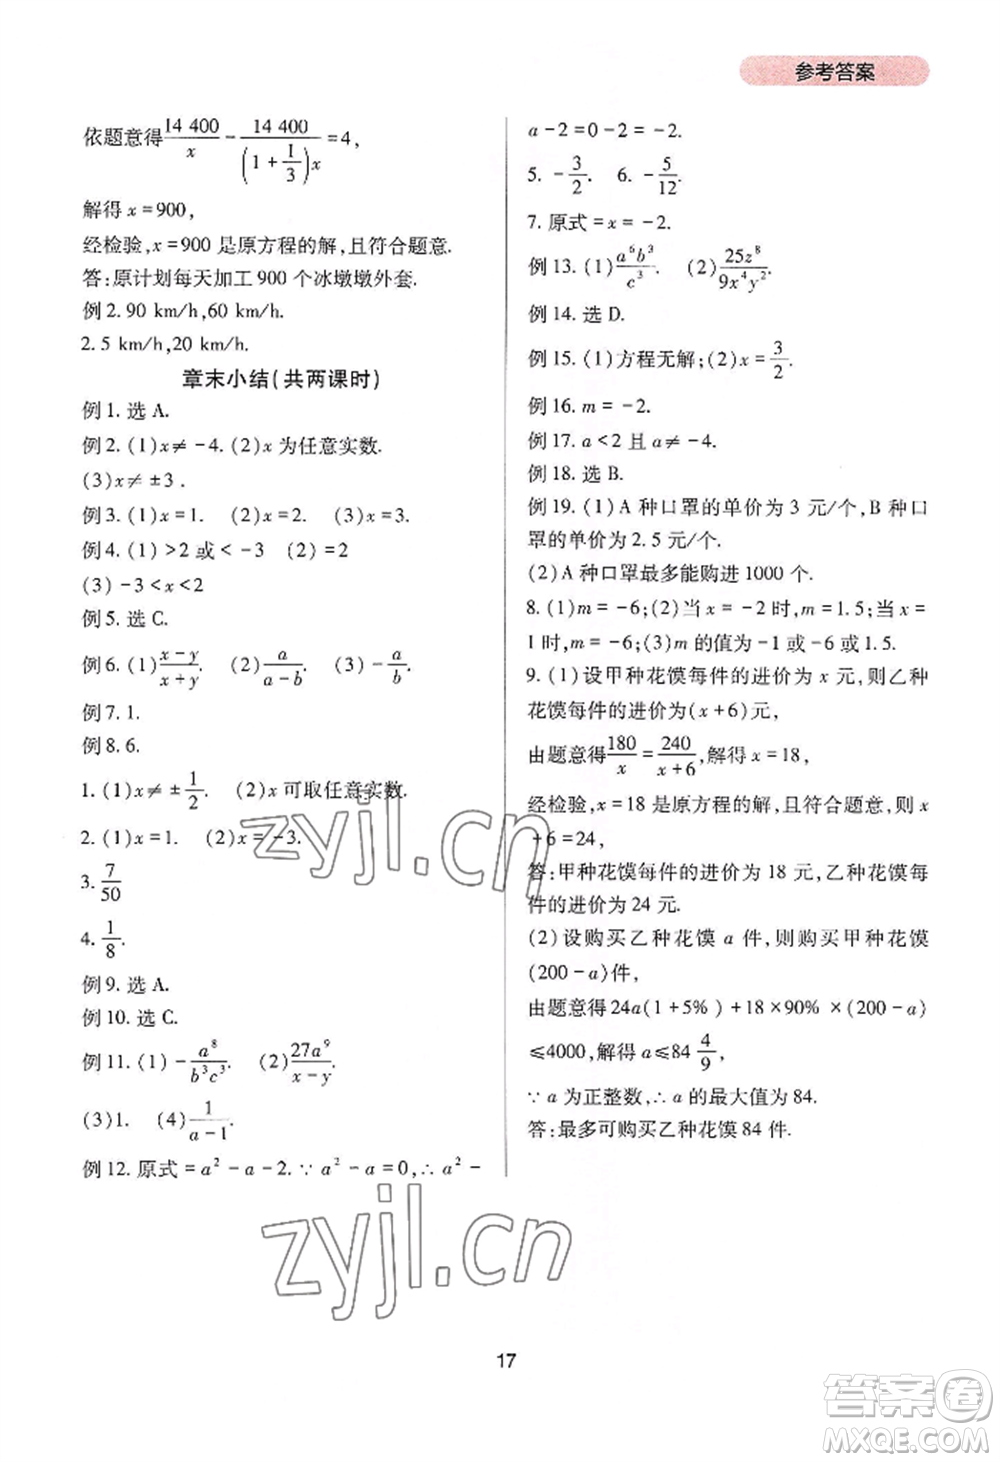 参考答案
依题意得 14 400/x − 14 400/(1+1/3)x =4,
解得 x=900,
经检验,x=900 是原方程的解,且符合题意.
答:原计划每天加工 900 个冰墩墩外套.
例 2. 90 km/h,60 km/h.
2. 5 km/h,20 km/h.
章末小结(共两课时)
例 1. 选 A.
例 2. (1)x≠−4. (2)x 为任意实数.
(3)x≠±3.
例 3. (1)x=1. (2)x=2. (3)x=3.
例 4. (1)>2 或<−3 (2)=2
(3)−3<x<2
例 5. 选 C.
例 6. (1)(x−y)/(x+y). (2)a/(a−b). (3)−a/b.
例 7. 1.
例 8. 6.
1. (1)x≠±1/2. (2)x 可取任意实数.
2. (1)x=1. (2)x=−3.
3. 7/50
4. 1/8.
例 9. 选 A.
例 10. 选 C.
例 11. (1)−a⁸/(b³c³). (2)27a⁹/(x−y).
(3)1. (4)1/(a−1).
例 12. 原式=a²−a−2. ∵a²−a=0,∴a²−
a−2=0−2=−2.
5. −3/2. 6. −5/12.
7. 原式=x=−2.
例 13. (1)a⁶b³/c³. (2)25z⁸/(9x⁴y²).
例 14. 选 D.
例 15. (1)方程无解;(2)x=3/2.
例 16. m=−2.
例 17. a<2 且 a≠−4.
例 18. 选 B.
例 19. (1)A 种口罩的单价为 3 元/个,B 种口
罩的单价为 2.5 元/个.
(2)A 种口罩最多能购进 1000 个.
8. (1)m=−6;(2)当 x=−2 时,m=1.5;当 x=
1 时,m=−6;(3)m 的值为−1 或−6 或 1.5.
9. (1)设甲种花馍每件的进价为 x 元,则乙种
花馍每件的进价为(x+6)元,
由题意得 180/x = 240/(x+6),解得 x=18,
经检验,x=18 是原方程的解,且符合题意,则 x
+6=24,
答:甲种花馍每件的进价为 18 元,乙种花馍每
件的进价为 24 元.
(2)设购买乙种花馍 a 件,则购买甲种花馍
(200−a)件,
由题意得 24a(1+5%)+18×90%×(200−a)
≤4000,解得 a≤84 4/9,
∵a 为正整数,∴a 的最大值为 84.
答:最多可购买乙种花馍 84 件.
zyjl.cn
zyjl.cn
17
答案圈
MXQE.COM